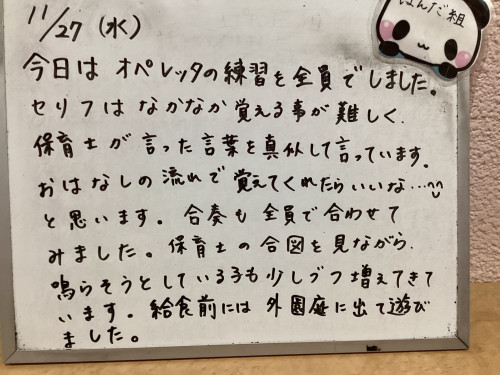 11/27 (水)
ぱんだ組
今日は オペレッタの練習を全員でしました。
セリフは なかなか 覚える事が 難しく、
保育士が 言った言葉を真似して言っています。
おはなしの 流れで 覚えてくれたらいいな…^^
と思います。 合奏も 全員で合わせて
みました。 保育士の合図を見ながら、
鳴らそうとしている子も 少しづつ 増えてきて
います。 給食前には 外園庭に出て遊び
ました。